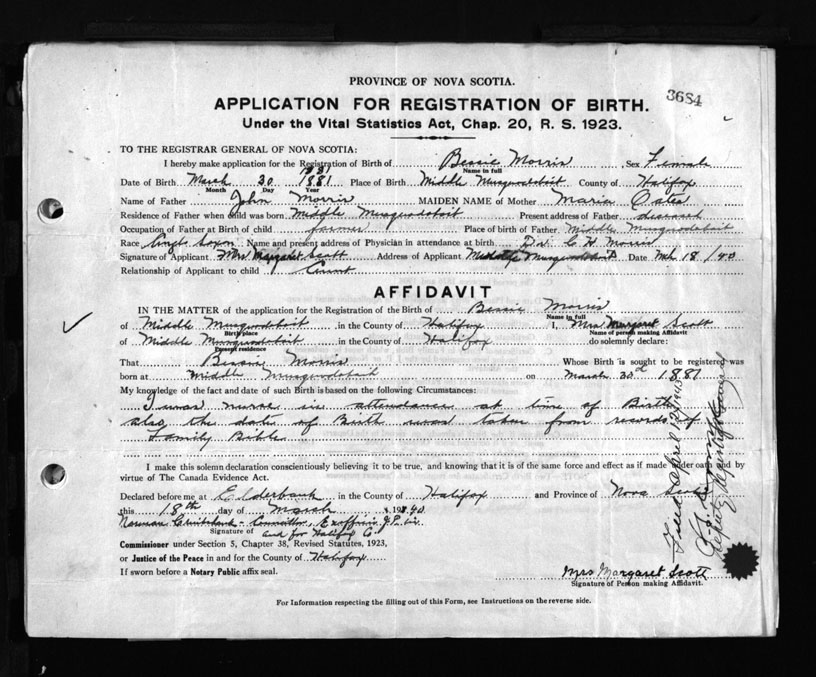 PROVINCE OF NOVA SCOTIA.
3684
APPLICATION FOR REGISTRATION OF BIRTH.
Under the Vital Statistics Act, Chap. 20, R. S. 1923.
TO THE REGISTRAR GENERAL OF NOVA SCOTIA:
I hereby make application for the Registration of Birth of Bessie Morris Sex Female
Name in full
Date of Birth March 30 1881 Place of Birth Middle Musquodoboit County of Halifax
Month Day Year
Name of Father John Morris MAIDEN NAME of Mother Maria
Residence of Father when child was born Middle Musquodoboit Present address of Father deceased
Occupation of Father at Birth of child farmer Place of birth of Father Middle Musquodoboit
Race Anglo Saxon Name and present address of Physician in attendance at birth Dr. C H Morris
Signature of Applicant Mrs Margaret Scott Address of Applicant Middle Musquodoboit Date Mch 18/40
Relationship of Applicant to child Aunt
AFFIDAVIT
IN THE MATTER of the application for the Registration of the Birth of Bessie Morris
Name in full
of Middle Musquodoboit in the County of Halifax I, Mrs Margaret Scott
Birth place Name of person making Affidavit
of Middle Musquodoboit in the County of Halifax do solemnly declare:
Present residence
That Bessie Morris Whose Birth is sought to be registered was
born at Middle Musquodoboit on March 30th 1881
My knowledge of the fact and date of such Birth is based on the following Circumstances:
I was nurse in attendance at time of Birth
also the date of Birth was taken from records of
Family Bible
I make this solemn declaration conscientiously believing it to be true, and knowing that it is of the same force and effect as if made under oath and by
virtue of The Canada Evidence Act.
Declared before me at Elderbank in the County of Halifax and Province of Nova Scotia
this 18th day of March 1940
Norman Councillor, Exofficio J.P. in
Signature of and for Halifax Co.
Commissioner under Section 5, Chapter 38, Revised Statutes, 1923,
or Justice of the Peace in and for the County of Halifax
If sworn before a Notary Public affix seal.
Mrs Margaret Scott
Signature of Person making Affidavit.
For Information respecting the filling out of this Form, see Instructions on the reverse side.
Filed April
Deputy Registrar General